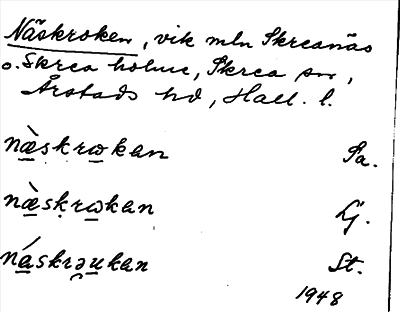 Näskroken, vik mln Skreanäs
o. Skrea holme, Skrea sn,
Årstads hd, Hall. l.
næ̀skrωkan Sa.
næ̀skrωkan Lj.
náskrəukan St.
1948